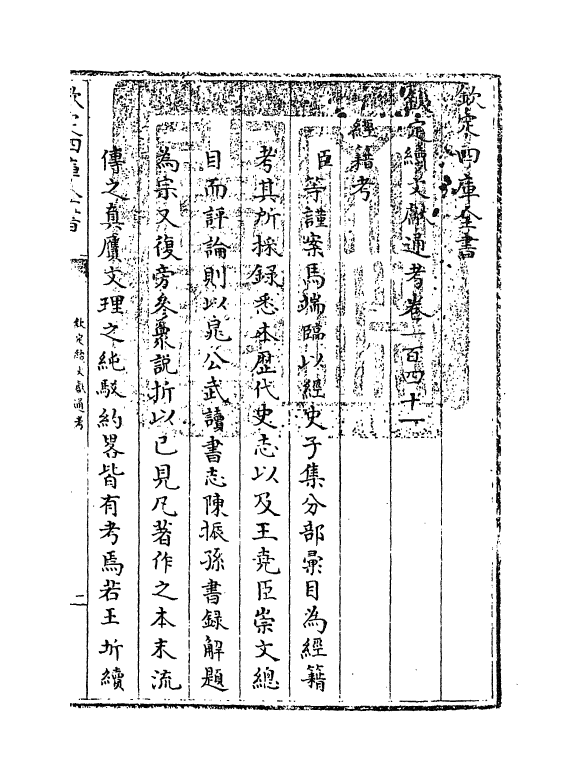 欽定四庫全書
欽定續文獻通考卷一百四十一
經籍考
臣等謹案馬端臨以經史子集分部彚目為經籍
考其所採録悉本歴代史志以及王堯臣崇文總
目而評論則以晁公武讀書志陳振孫書録解題
為宗又復旁參衆説折以己見凡著作之本末流
傳之真贋文理之純駁約畧皆有考焉若王圻續
欽定四庫全書
欽定續文獻通考